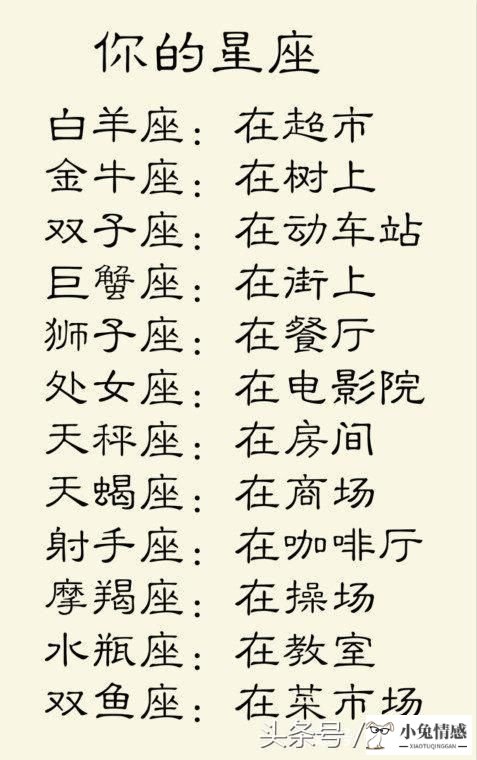 你的星座
白羊座：在超市
金牛座：在树上
双子座：在动车站
巨蟹座：在街上
狮子座：在餐厅
处女座：在电影院
天秤座：在房间
天蝎座：在商场
射手座：在咖啡厅
摩羯座：在操场
水瓶座：在教室
双鱼座：在菜市场
头条号/
小兔情感
XIAOTUQINGGAN